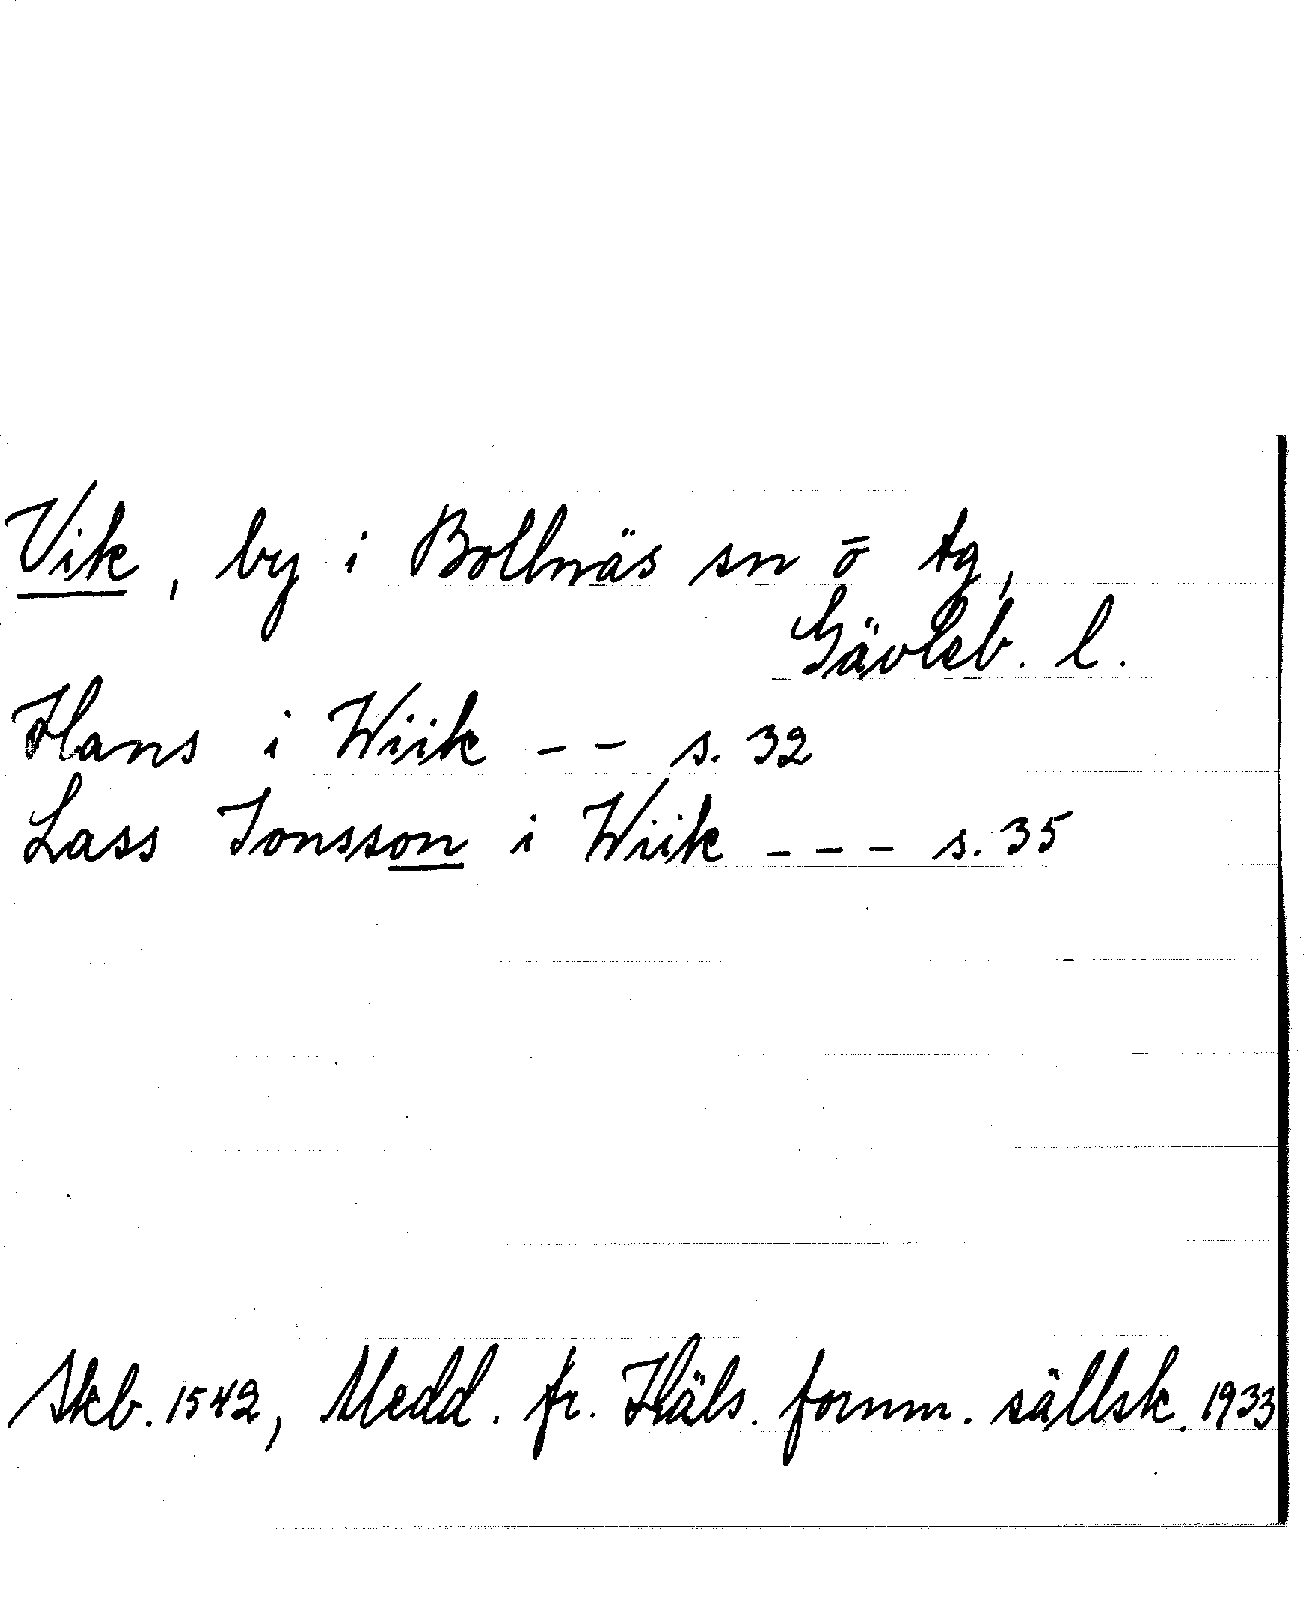 Vik, by i Bollnäs sn o tg,
Gävleb. l.
Hans i Wiik -- s. 32
Lass Jonsson i Wiik --- s. 35
Skb. 1542, Medd. fr. Häls. fornm. sällsk. 1933